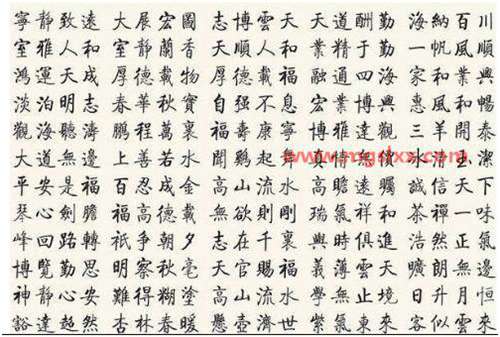 寧靜致遠 大展宏圖 志博雲天 天道酬勤 海納百川
室雅人和 室靜蘭香 大順人和 業精于勤 一帆風順
鴻運天成 厚德載物 厚德載福 融通四海 業興
淡泊明志 春華秋實 自强不息 宏業博興 惠風和暢
觀海聽濤 鵬程萬裏 福壽康寧 博雅達觀 三羊開泰
大道無邊 上善若水 聞鷄起舞
平安是福 百忍成金 高山流水 高瞻遠矚 誠信天下
琴心劍膽 福高德載 無欲則剛 瑞氣祥和 茶禪一味
峰回路轉 祇争朝夕 志在千裏 與時俱進 浩然正氣
博覽勤思 明察秋毫 天官賜福 義薄雲天 曠朗無邊
神靜心安 難得糊塗 高山流水 學無止境 日升月恒
豁達超然 杏林春暖 懸壺濟世 紫氣東來 客似雲來